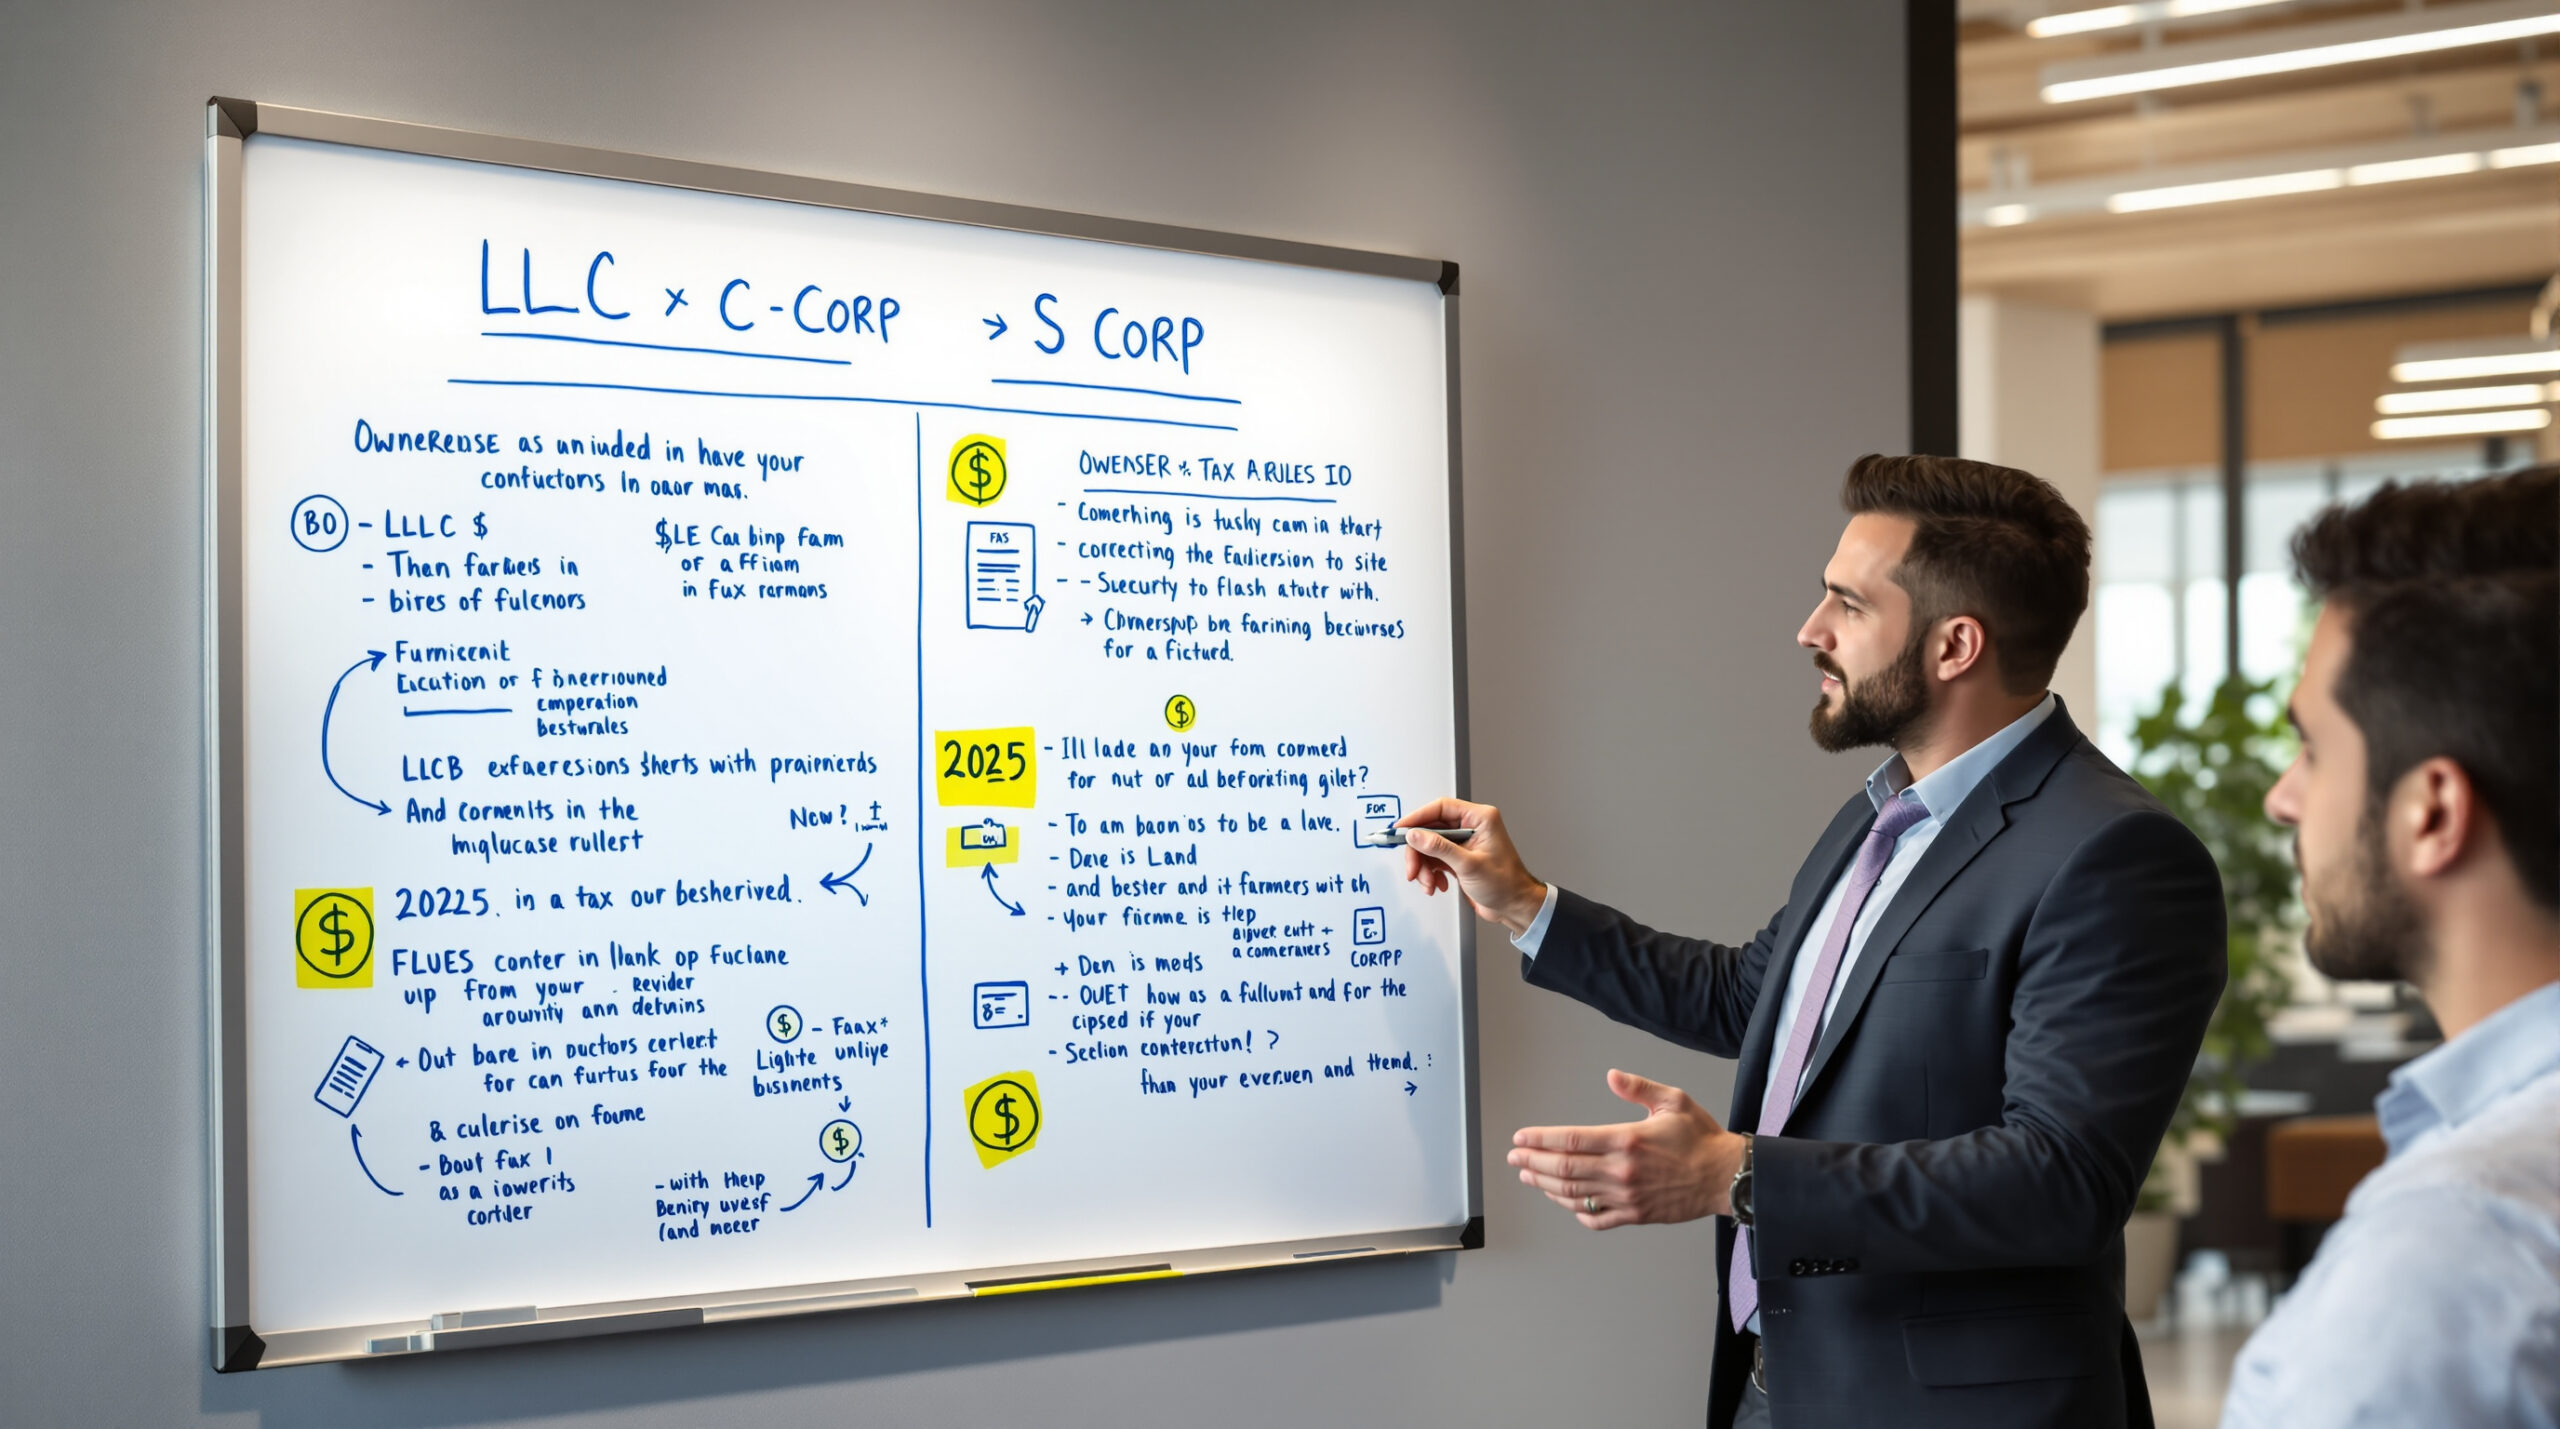 LLC × C-CORP → S CORP
OWNEREUSE as uniuded in have your
confuctons In oaor mas.
BO - LLLC $
- Then farkers in
- bires of fulcnors
$LE Cau binp fam
of a fficom
in fux rormans
Furnicenit
Excution or f bnerriouned
cmperation
besturales
LLCB exfaeresions sherts with praipnierds
And cornenlts in the
miglucase rullert
Now? ±
20225. in a tax our besherived.
FLUES conter in llank op fuclane
uip from your . Revider
arowvity ann detuins
← Out bare in ouctors cerlert
for can furtus four the
& culerise on foume
- Bout fax l
as a iowerits
cortiler
$ - Faax*
Lighte unliye
busınents
$
-with theip
Beniry uvesf
(and nocer
$
OWENSER * TAX ARULES IO
FAS
- Comerhing is tushy cam in thart
- correcting the Eadiersion to site
- - Suecurty to flash atustr with.
→ Chvnerspup bre farining beciursses
for a ficturd.
$
2025
- Ill lade an your fom conmerd
for nut or ad beforitfing gilet?
- To am baon'os to be a lave.
FOR
- Date is Land
- and bester and it farmers wit ch
- your ficnme is thep
aijver eutt +
a comerniers
CORPP
+ Den is meds
-- OUET how as a fulluvnt and for the
cipsed if your
8=
- Section conterctun! ?
than your everuen and tremd. :
→
$